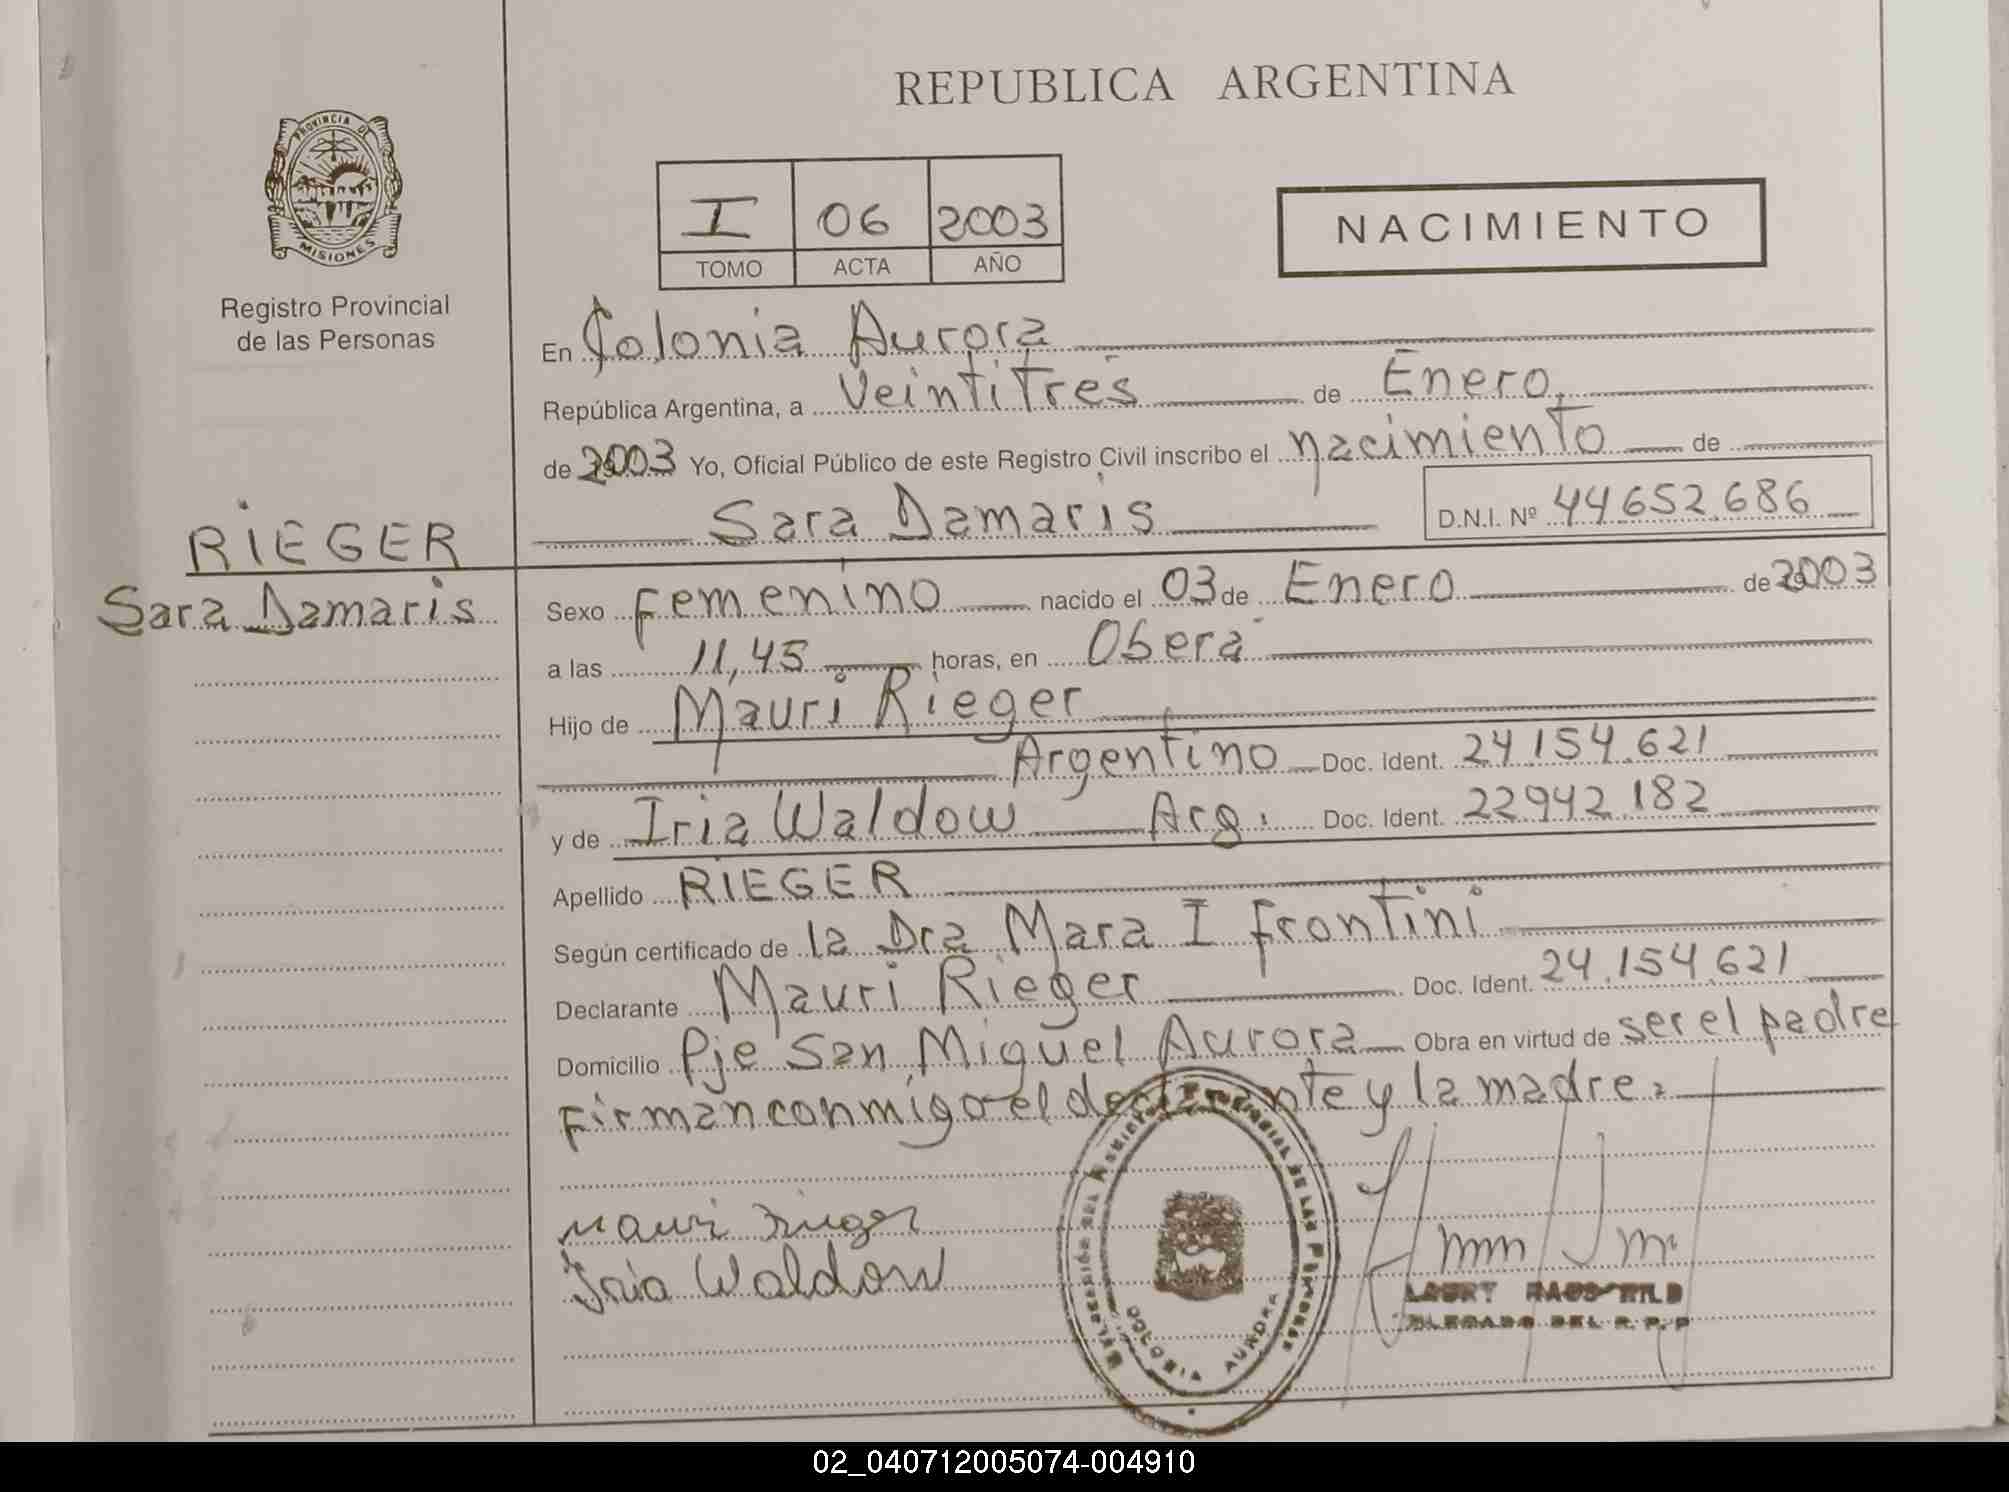 REPUBLICA ARGENTINA
PROVINCIA DE
MISIONES
Registro Provincial
de las Personas
I 06 2003
TOMO ACTA AÑO
NACIMIENTO
En Colonia Aurora
República Argentina, a Veintitrés de Enero,
de 2003 Yo, Oficial Público de este Registro Civil inscribo el nacimiento de
Sara Damaris D.N.I. Nº 44652.686
RIEGER
Sara Damaris
Sexo Femenino nacido el 03 de Enero de 2003
a las 11,45 horas, en Oberá
Hijo de Mauri Rieger
Argentino Doc. Ident. 24.154.621
y de Iria Waldow Arg. Doc. Ident. 22942.182
Apellido RIEGER
Según certificado de la Dra Mara I Frontini
Declarante Mauri Rieger Doc. Ident. 24.154.621
Domicilio Pje San Miguel Aurora Obra en virtud de ser el padre
Firman conmigo el declarante y la madre.
Mauri Rieger
Iria Waldow
DELEGACIÓN DEL REGISTRO PROVINCIAL DE LAS PERSONAS
COLONIA AURORA
DELEGADO DEL R.P.P
02_040712005074-004910